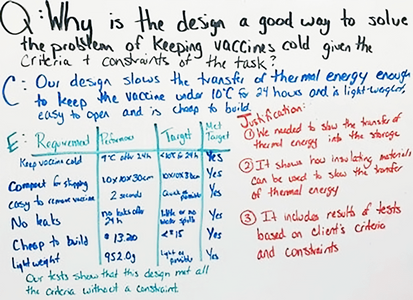 Q: Why is the design a good way to solve
the problem of keeping vaccines cold given the
criteria + constraints of the task?
C: Our design slows the transfer of thermal energy enough
to keep the vaccine under 10°C for 24 hours and is light-weight,
easy to open and is cheap to build.
E: Requirement Performance Target Met Target
Keep vaccine cold 9°C after 24h <10°C @ 24h Yes
Compact for shipping 10x10x30cm 10x10x30cm Yes
easy to remove vaccine 2 seconds Quick as possible Yes
No leaks no leaks after 24 h little or no water spills Yes
Cheap to build $13.20 <$15 Yes
light weight 952.0g Light as possible Yes
Our tests show that this design met all
the criteria without a constraint.
Justification:
① We needed to slow the transfer of
thermal energy into the storage
② It shows how insulating materials
can be used to slow the transfer
of thermal energy
③ It includes results of tests
based on client's criteria
and constraints